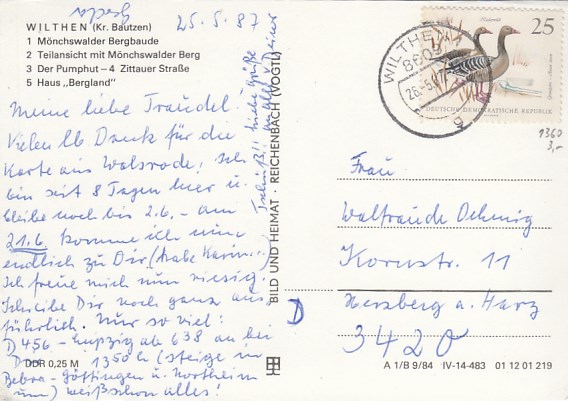 25.5.87
WILTHEN (Kr. Bautzen)
1 Mönchswalder Bergbaude
2 Teilansicht mit Mönchswalder Berg
3 Der Pumphut – 4 Zittauer Straße
5 Haus „Bergland"
Meine liebe Traudel.
Vielen lb Dank für die
Karte aus Walsrode. Ich
bin seit 8 Tagen hier u.
bleibe noch bis 2.6. – am
21.6. komme ich nun
endlich zu Dir (habe Karin...)
Ich freue mich nun riesig.
Schreibe Dir noch ganz aus-
führlich. Nur so viel:
D 456 – Leipzig ab 638 an bei
Dir 1350 h (steige in
Bebra – Göttingen u. Northeim
um) weißt schon alles!
Tschüß!! Liebe Grüße
DDR 0,25 M
BILD UND HEIMAT · REICHENBACH (VOGTL)
WILTHEN
8603
26.-5.87
g
25
DEUTSCHE DEMOKRATISCHE REPUBLIK
1360
3,-
Frau
Waltraude Oehmig
Kornstr. 11
Herzberg a. Harz
3420
D
A 1/B 9/84 IV-14-483 01 12 01 219